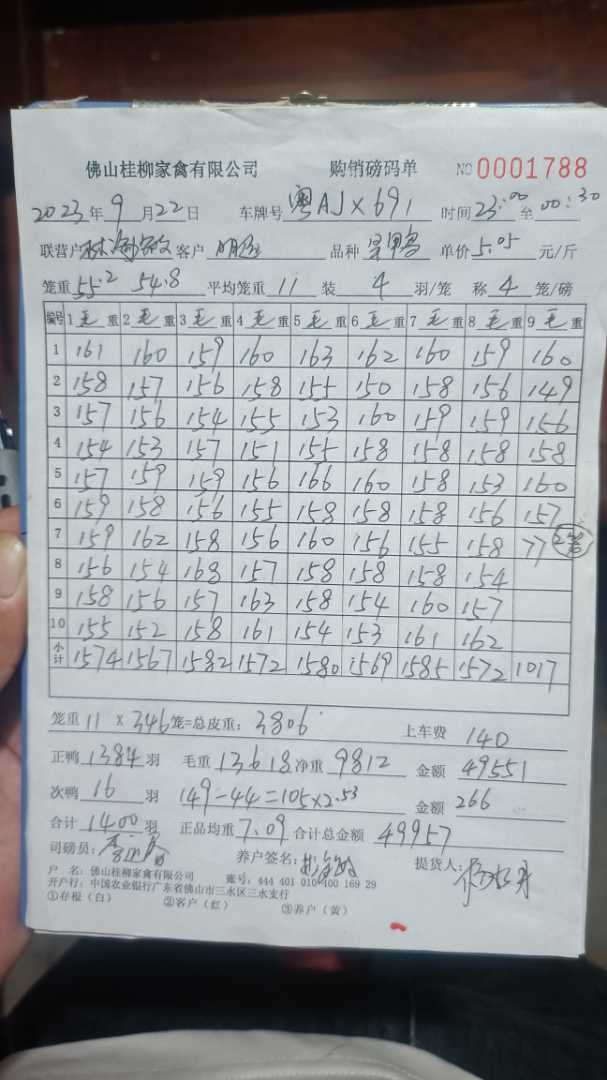 佛山桂柳家禽有限公司 购销磅码单 NO 0001788
2023年9月22日 车牌号 粤AJX691 时间23:00至00:30
联营户 客户 明 品种 鸭 单价5.05元/斤
笼重55.2 54.8 平均笼重 11 装 4 羽/笼 称 4 笼/磅
编号 1毛重 2毛重 3毛重 4毛重 5毛重 6毛重 7毛重 8毛重 9毛重
1 161 160 159 160 163 162 160 159 160
2 158 157 156 158 155 150 158 156 149
3 157 156 154 155 153 160 159 159 156
4 154 153 157 151 155 158 158 158 158
5 157 159 159 156 166 160 158 153 160
6 159 158 156 155 158 158 158 156 157
7 159 162 158 156 160 156 155 158 77
8 156 154 168 157 158 158 158 154
9 158 156 157 163 158 154 160 157
10 155 152 158 161 154 153 161 162
小计 1574 1567 1582 1572 1580 1569 1585 1572 1017
笼重11×346笼=总皮重:3806 上车费 140
正鸭1384羽 毛重13618净重9812 金额49551
次鸭16羽 149-44=105×2.53 金额266
合计1400羽 正品均重7.09合计总金额49957
司磅员: 养户签名: 提货人:
户 名:佛山桂柳家禽有限公司 账号:444 401 010 400 169 29
开户行:中国农业银行广东省佛山市三水区三水支行
①存根(白) ②客户(红) ③养户(黄)